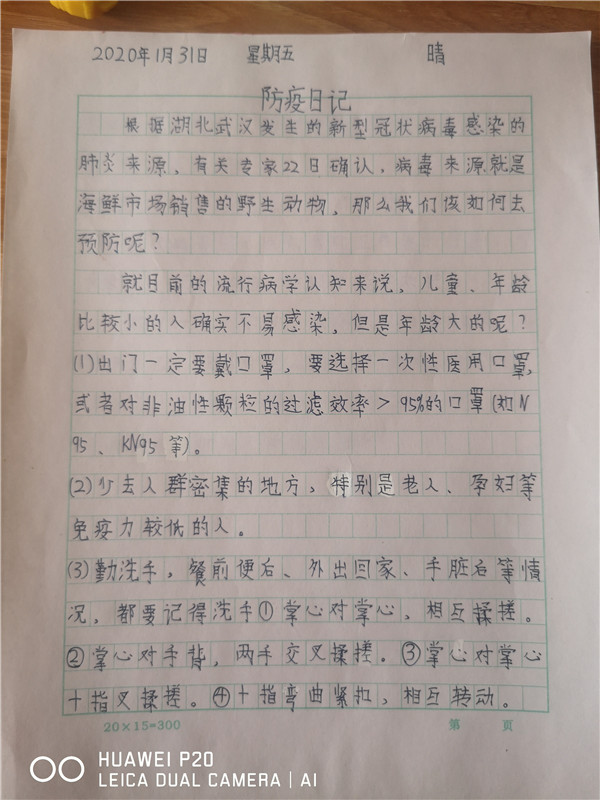 2020年1月31日 星期五 晴
防疫日记
根据湖北武汉发生的新型冠状病毒感染的
肺炎来源，有关专家22日确认，病毒来源就是
海鲜市场销售的野生动物，那么我们该如何去
预防呢？
就目前的流行病学认知来说，儿童、年龄
比较小的人确实不易感染，但是年龄大的呢？
(1)出门一定要戴口罩，要选择一次性医用口罩，
或者对非油性颗粒的过滤效率＞95%的口罩(如N
95、KN95等)。
(2)少去人群密集的地方，特别是老人、孕妇等
免疫力较低的人。
(3)勤洗手，餐前便后、外出回家、手脏后等情
况，都要记得洗手①掌心对掌心，相互揉搓。
②掌心对手背，两手交叉揉搓。③掌心对掌心
十指叉揉搓。④十指弯曲紧扣，相互转动。
20×15=300 第 页
HUAWEI P20
LEICA DUAL CAMERA | AI